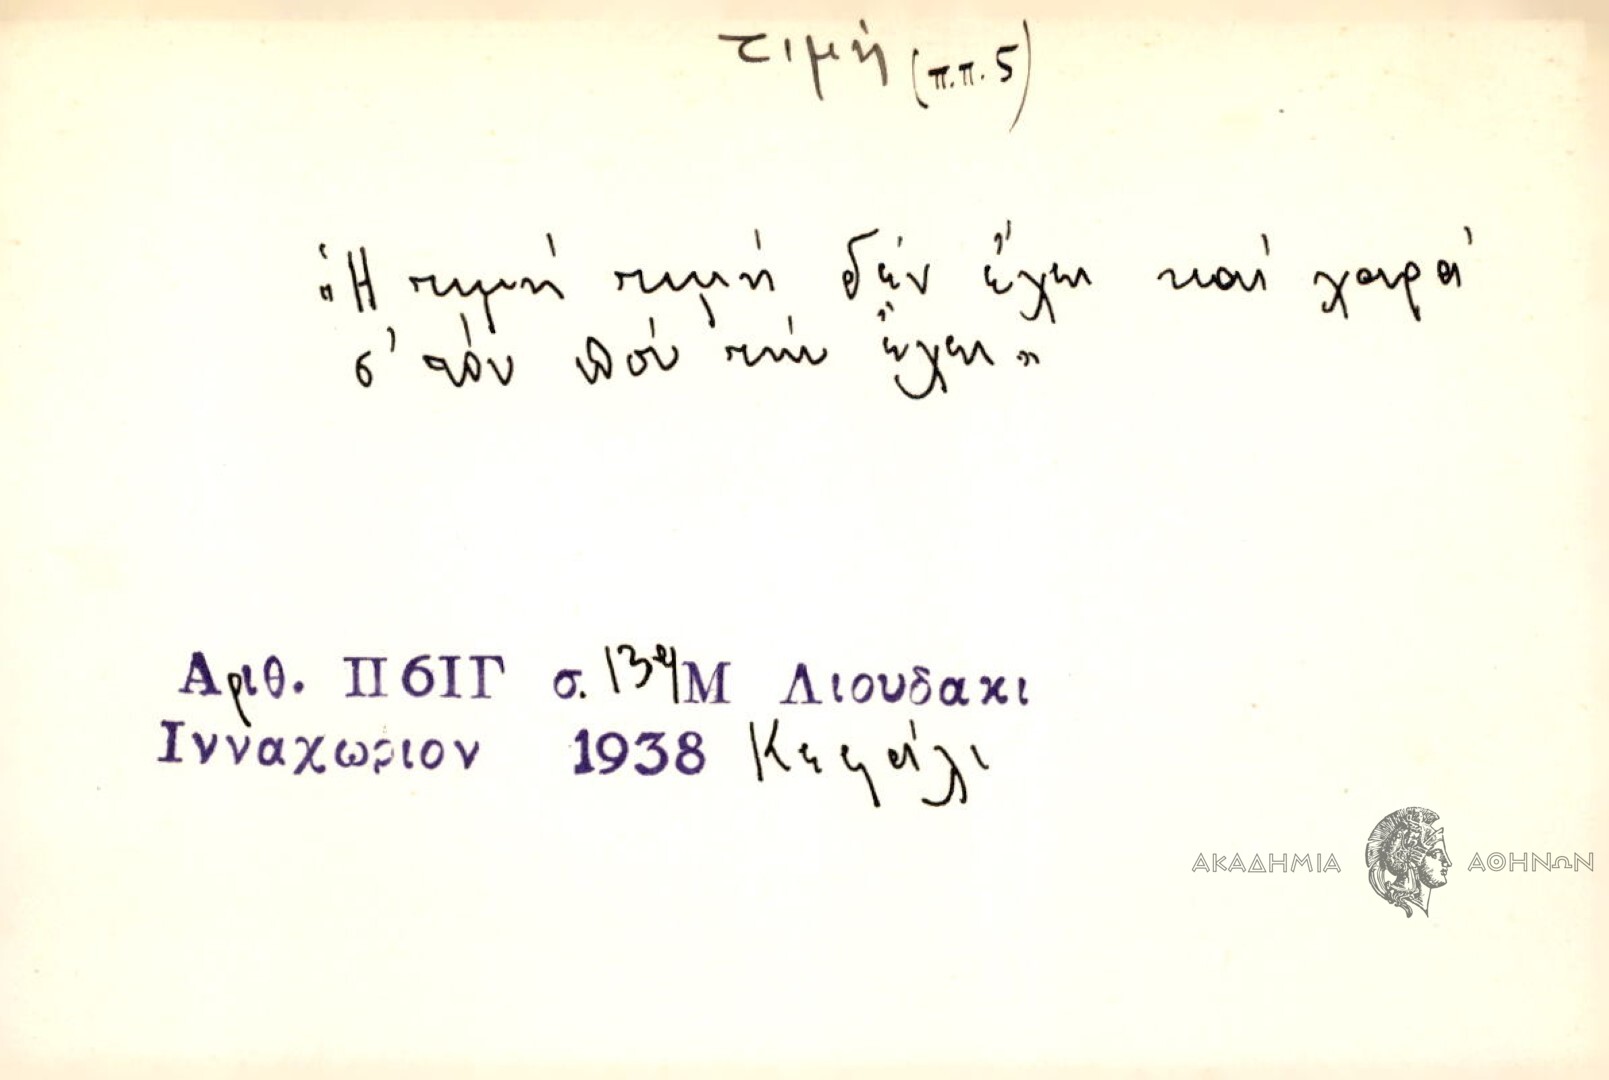 τιμή (π.π. 5)
"Ἡ τιμή τιμή δέν ἔχει καί χαρά
σ' τόν πού τήν ἔχει"
Αριθ. Π6ΙΓ σ. Μ Λιουδακι
Ινναχωριον 1938 Κεφάλι
ΑΚΑΔΗΜΙΑ ΑΘΗΝΩΝ